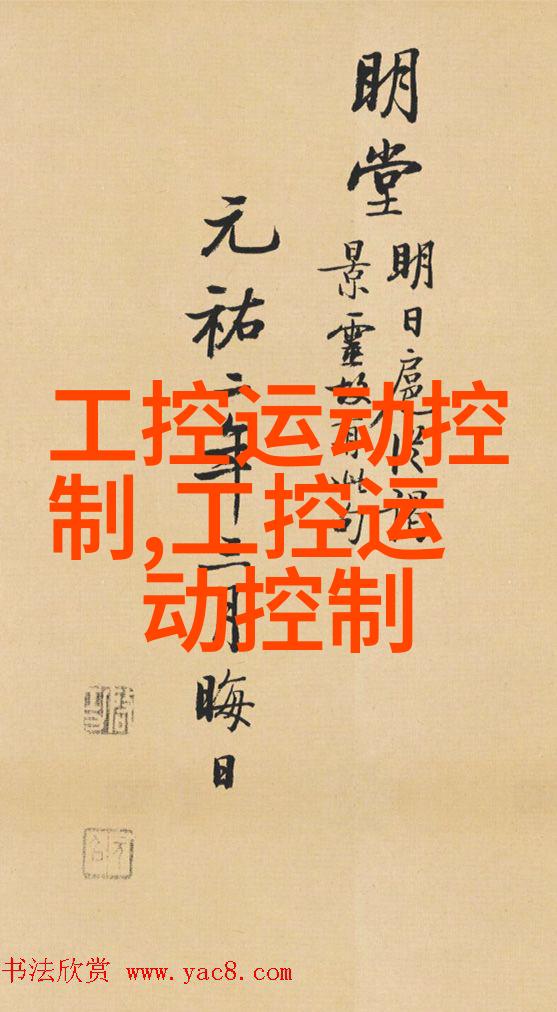 明堂
明日扈從謁
景靈故有此句
元祐二年三月晦日
工控运动控
制,工控运
动控制
书法欣赏 www.yac8.com